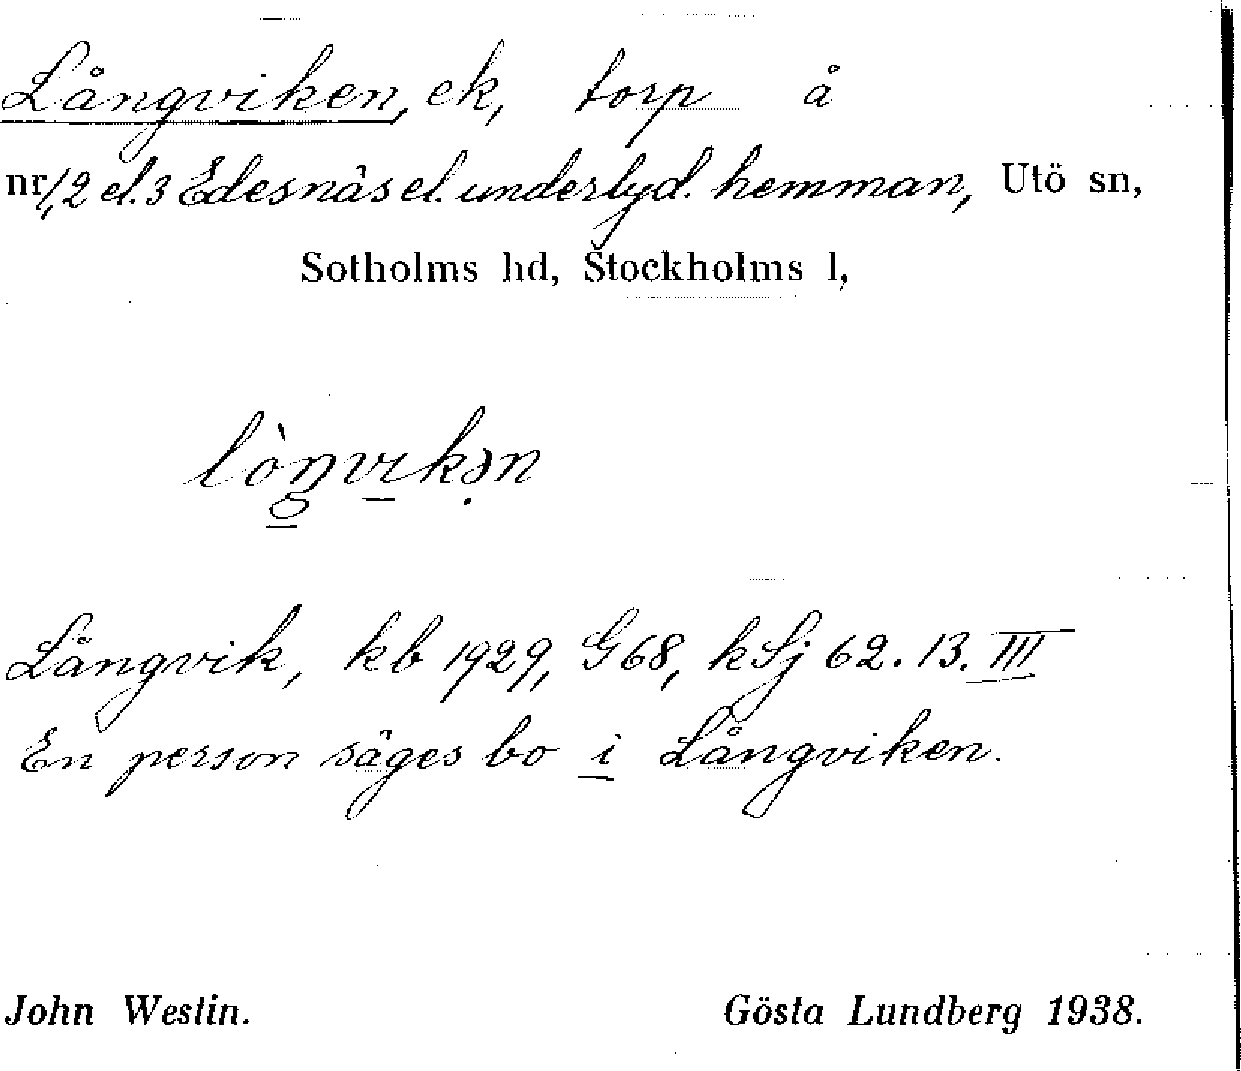 Långviken, ek, torp å
nr 1, 2 el. 3 Edesnäs el. underlyd. hemman, Utö sn,
Sotholms hd, Stockholms l,
lòŋvıkən
Långvik, kb 1929, G68, kSj 62. 13. III
En person säges bo i Långviken.
John Westin. Gösta Lundberg 1938.